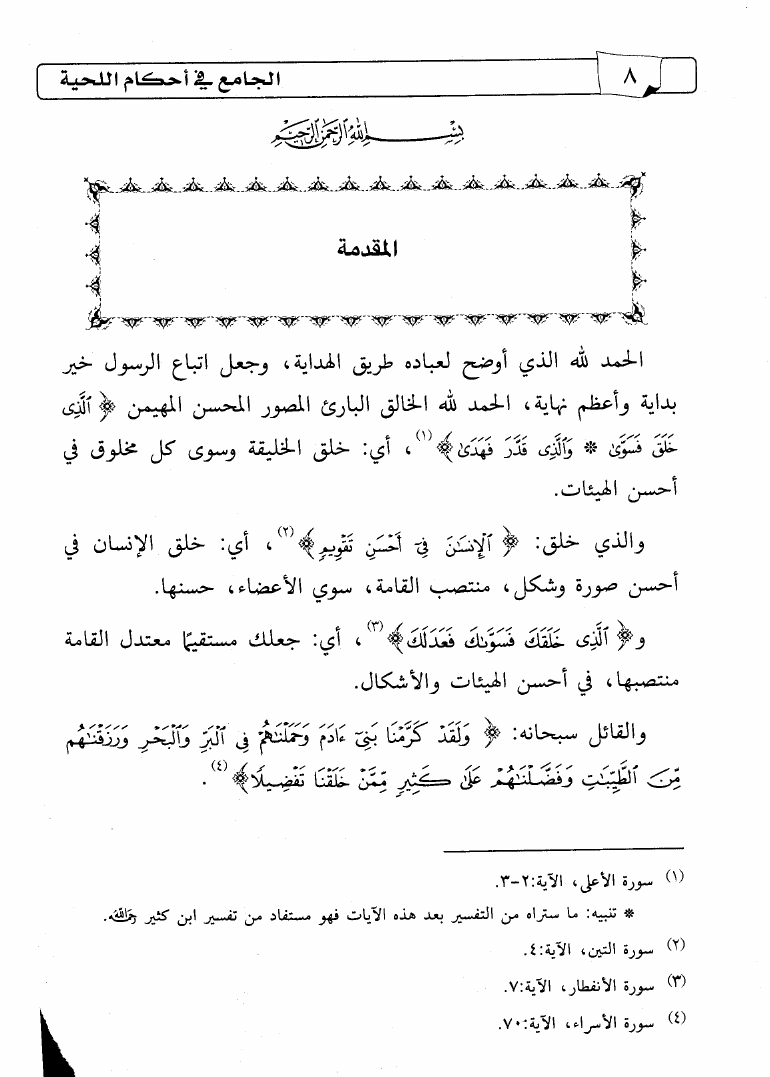 الجامع في أحكام اللحية
٨
بِسْمِ اللَّهِ الرَّحْمَنِ الرَّحِيمِ
المقدمة
الحمد لله الذي أوضح لعباده طريق الهداية، وجعل اتباع الرسول خير
بداية وأعظم نهاية، الحمد لله الخالق البارئ المصور المحسن المهيمن ﴿ ٱلَّذِى
خَلَقَ فَسَوَّىٰ * وَٱلَّذِى قَدَّرَ فَهَدَىٰ ﴾(١)، أي: خلق الخليقة وسوى كل مخلوق في
أحسن الهيئات.
والذي خلق: ﴿ ٱلْإِنسَـٰنَ فِىٓ أَحْسَنِ تَقْوِيمٍ ﴾(٢)، أي: خلق الإنسان في
أحسن صورة وشكل، منتصب القامة، سوي الأعضاء، حسنها.
و﴿ ٱلَّذِى خَلَقَكَ فَسَوَّىٰكَ فَعَدَلَكَ ﴾(٣)، أي: جعلك مستقيمًا معتدل القامة
منتصبها، في أحسن الهيئات والأشكال.
والقائل سبحانه: ﴿ وَلَقَدْ كَرَّمْنَا بَنِىٓ ءَادَمَ وَحَمَلْنَـٰهُمْ فِى ٱلْبَرِّ وَٱلْبَحْرِ وَرَزَقْنَـٰهُم
مِّنَ ٱلطَّيِّبَـٰتِ وَفَضَّلْنَـٰهُمْ عَلَىٰ كَثِيرٍ مِّمَّنْ خَلَقْنَا تَفْضِيلًا ﴾(٤).
(١) سورة الأعلى، الآية:٢-٣.
* تنبيه: ما ستراه من التفسير بعد هذه الآيات فهو مستفاد من تفسير ابن كثير رحمه الله.
(٢) سورة التين، الآية:٤.
(٣) سورة الأنفطار، الآية:٧.
(٤) سورة الأسراء، الآية:٧٠.